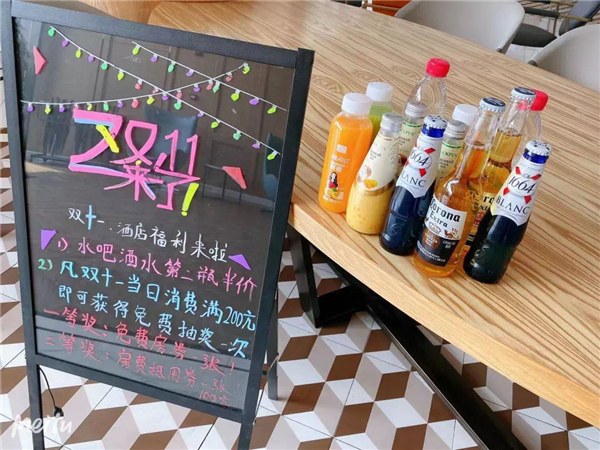 双11
来了!
双十一.酒店福利来啦
1) 水吧酒水第二瓶半价
2) 凡双十一当日消费满200元
即可获得免费抽奖一次
一等奖:免费房券一张!
二等奖:房费抵用券一张!
100元
1664
BLANC
Corona
Extra
1664
BLANC